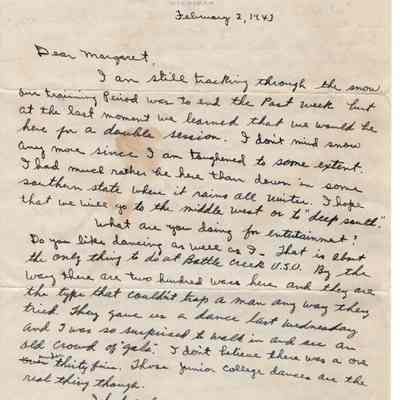 MICHIGAN
February 2, 1943
Dear Margaret,
I am still tracking through the snow
our training Period was to end the Past week but
at the last moment we learned that we would be
here for a double session. I don't mind snow
any more since I am toughened to some extent.
I had much rather be here than down in some
southern state where it rains all winter. I hope
that we will go to the middle west or to "deep south".
What are you doing for entertainment?
Do you like dancing as well as I. That is about
the only thing to do at Battle Creek U.S.O. By the
way there are two hundred waacs here and they are
the type that couldn't trap a man any way they
tried. They gave us a dance last Wednesday
and I was so surprised to walk in and see an
old crowd of "gals". I don't believe there was a one
under thirty five. Those junior college dances are the
real thing though.